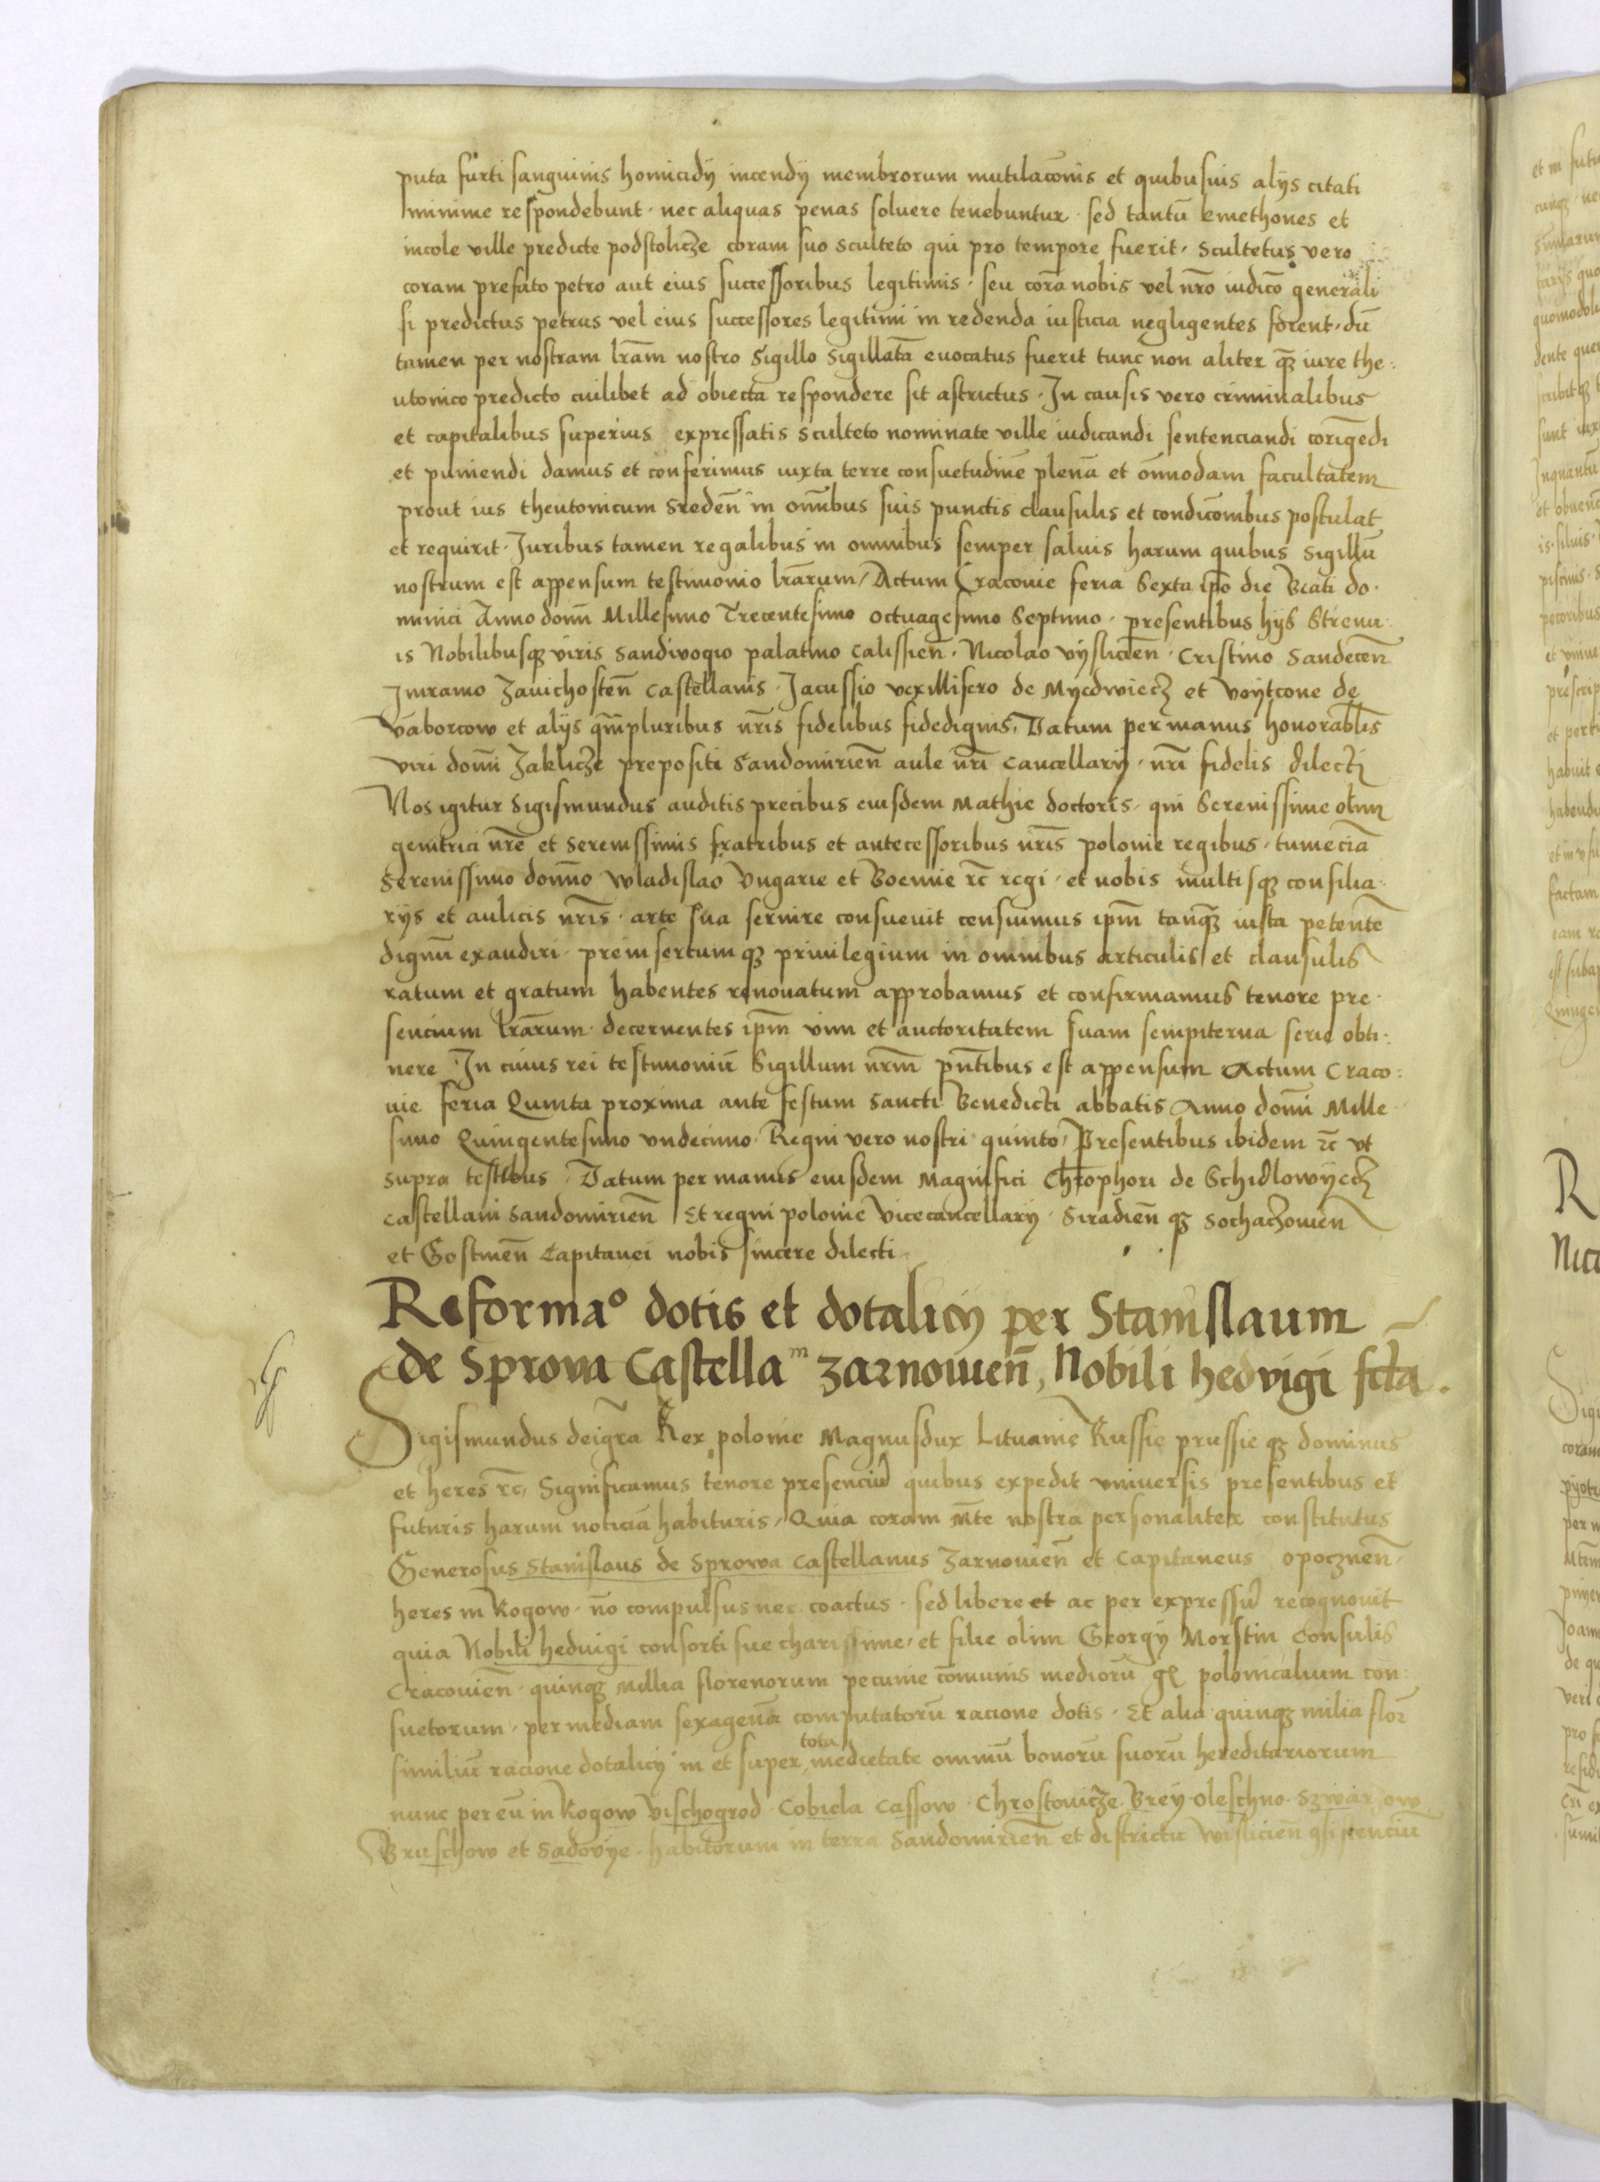 puta furti sanguinis homicidÿ incendÿ membrorum mutilacōnis et quibusuis alÿs citati
minime respondebunt · nec aliquas penas soluere tenebuntur · sed tantū kmethones et
incole ville predicte podstolicze coram suo sculteto qui pro tempore fuerit · scultetus vero
coram prefato petro aut eius successoribus legitimis · seu corā nobis vel nr̄o iudicō generali
si predictus petrus vel eius successores legitimi in redenda iusticia negligentes forent · dū
tamen per nostram lrām nostro sigillo sigillatā euocatus fuerit tunc non aliter qȝ iure the:
utonico predicto cuilibet ad obiecta respondere sit astrictus · In causis vero criminalibus
et capitalibus superius expressatis sculteto nominate ville iudicandi sentenciandi corigēdi
et puniendi damus et conferimus iuxta terre consuetudinē plenā et om̄nodam facultatem
prout ius theutonicum sreden̄ in om̄ibus suis punctis clausulis et condicōnibus postulat
et requirit · Juribus tamen regalibus in omnibus semper saluis harum quibus sigillū
nostrum est appensum testimonio lrārum / Actum Cracouie feria sexta ip̄o die Beati do·
minici Anno domī Millesimo Trecentesimo octuagesimo septimo · presentibus hÿs Strenu·
is Nobilibusqȝ viris Sandivogio palatino Calissien̄ · Nicolao vÿslicien̄ · Cristino Sandecen̄
Imramo Zauichosten̄ Castellanis · Jacussio vexillifero de Mÿedwiecz et Voÿtcone de
Vāborcow et alÿs qm̄pluribus nr̄is fidelibus fidedignis · Datum per manus honorabl̄is
viri domī Zaklicze prepositi Sandomirien̄ aule nr̄i Cancellarÿ · nr̄i fidelis dilecti
Nos igitur Sigismundus auditis precibus eiusdem Mathie doctoris · qui Serenissime olim
genitrici nr̄e et serenissimis fratribus et antecessoribus nr̄is polonie regibus · tumeciā
Serenissimo domno Wladislao Vngarie et Boemie rc̄ regi · et nobis multisqȝ consilia·
rÿs et aulicis nr̄is · arte sua seruire consueuit censuimus ipm̄ tanqȝ iusta petentē
dignū exaudiri · preinsertumqȝ priuilegium in omnibus articulis et clausulis
ratum et gratum habentes renouatum approbamus et confirmamus tenore pre·
sencium lrārum · decernentes ipm̄ vim et auctoritatem suam sempiterna serie obti·
nere · In cuius rei testimoniū sigillum nrm̄ pn̄tibus est appensum Actum Craco:
uie feria Quinta proxima ante festum Sancti Benedicti abbatis Anno domī Mille·
simo Quingentesimo vndecimo · Regni vero nostri quinto / Presentibus ibidem rc̄ vt
supra testibus · Datum per manus eiusdem Magnifici Chr̄ophori de Schidlowÿecz
Castellani Sandomirien̄ Et regni polonie Vicecancellarÿ · Siradien̄qȝ Sochaczouien̄
et Gostinen̄ Capitanei nobis sincere dilecti
Reformaº dotis et dotalicÿ per Stanislaum
de Sprova Castellaᵐ Zarnouien̄, Nobili Hedvigi fctā.
Sigismundus deigrā Rex polonie Magnusdux Lituanie Russie prussieqȝ dominus
et heres rc̄, Significamus tenore presenciū quibus expedit vniuersis presentibus et
futuris harum noticiā habituris, Quia coram Mt̄e nostra personaliter constitutus
Generosus Stanislaus de Sprowa Castellanus Zarnouien̄ et Capitaneus opocznen̄·
heres in Rogow · nō compulsus nec coactus · sed libere et ac per expressū recognouit
quia Nobili hedvigi consorti sue charissime · et filie olim Georgÿ Morstin Consulis
Cracouien̄ · quinqȝ millia florenorum pecunie cōmunis mediorū polonicalium con·
suetorum · per mediam sexagenā computatorū racione dotis · Et alia quinqȝ milia flor̄
similiū racione dotalicÿ in et super tota medietate omniū bonorū suorū hereditariorum
nunc per eū in Rogow Vischogrod · Cobiela Cassow · Chrostovicze · Breÿ · Oleschno
Bruschow et Sadovÿe · habitorum in terra Sandomirien̄ et districtu Wislicien̄